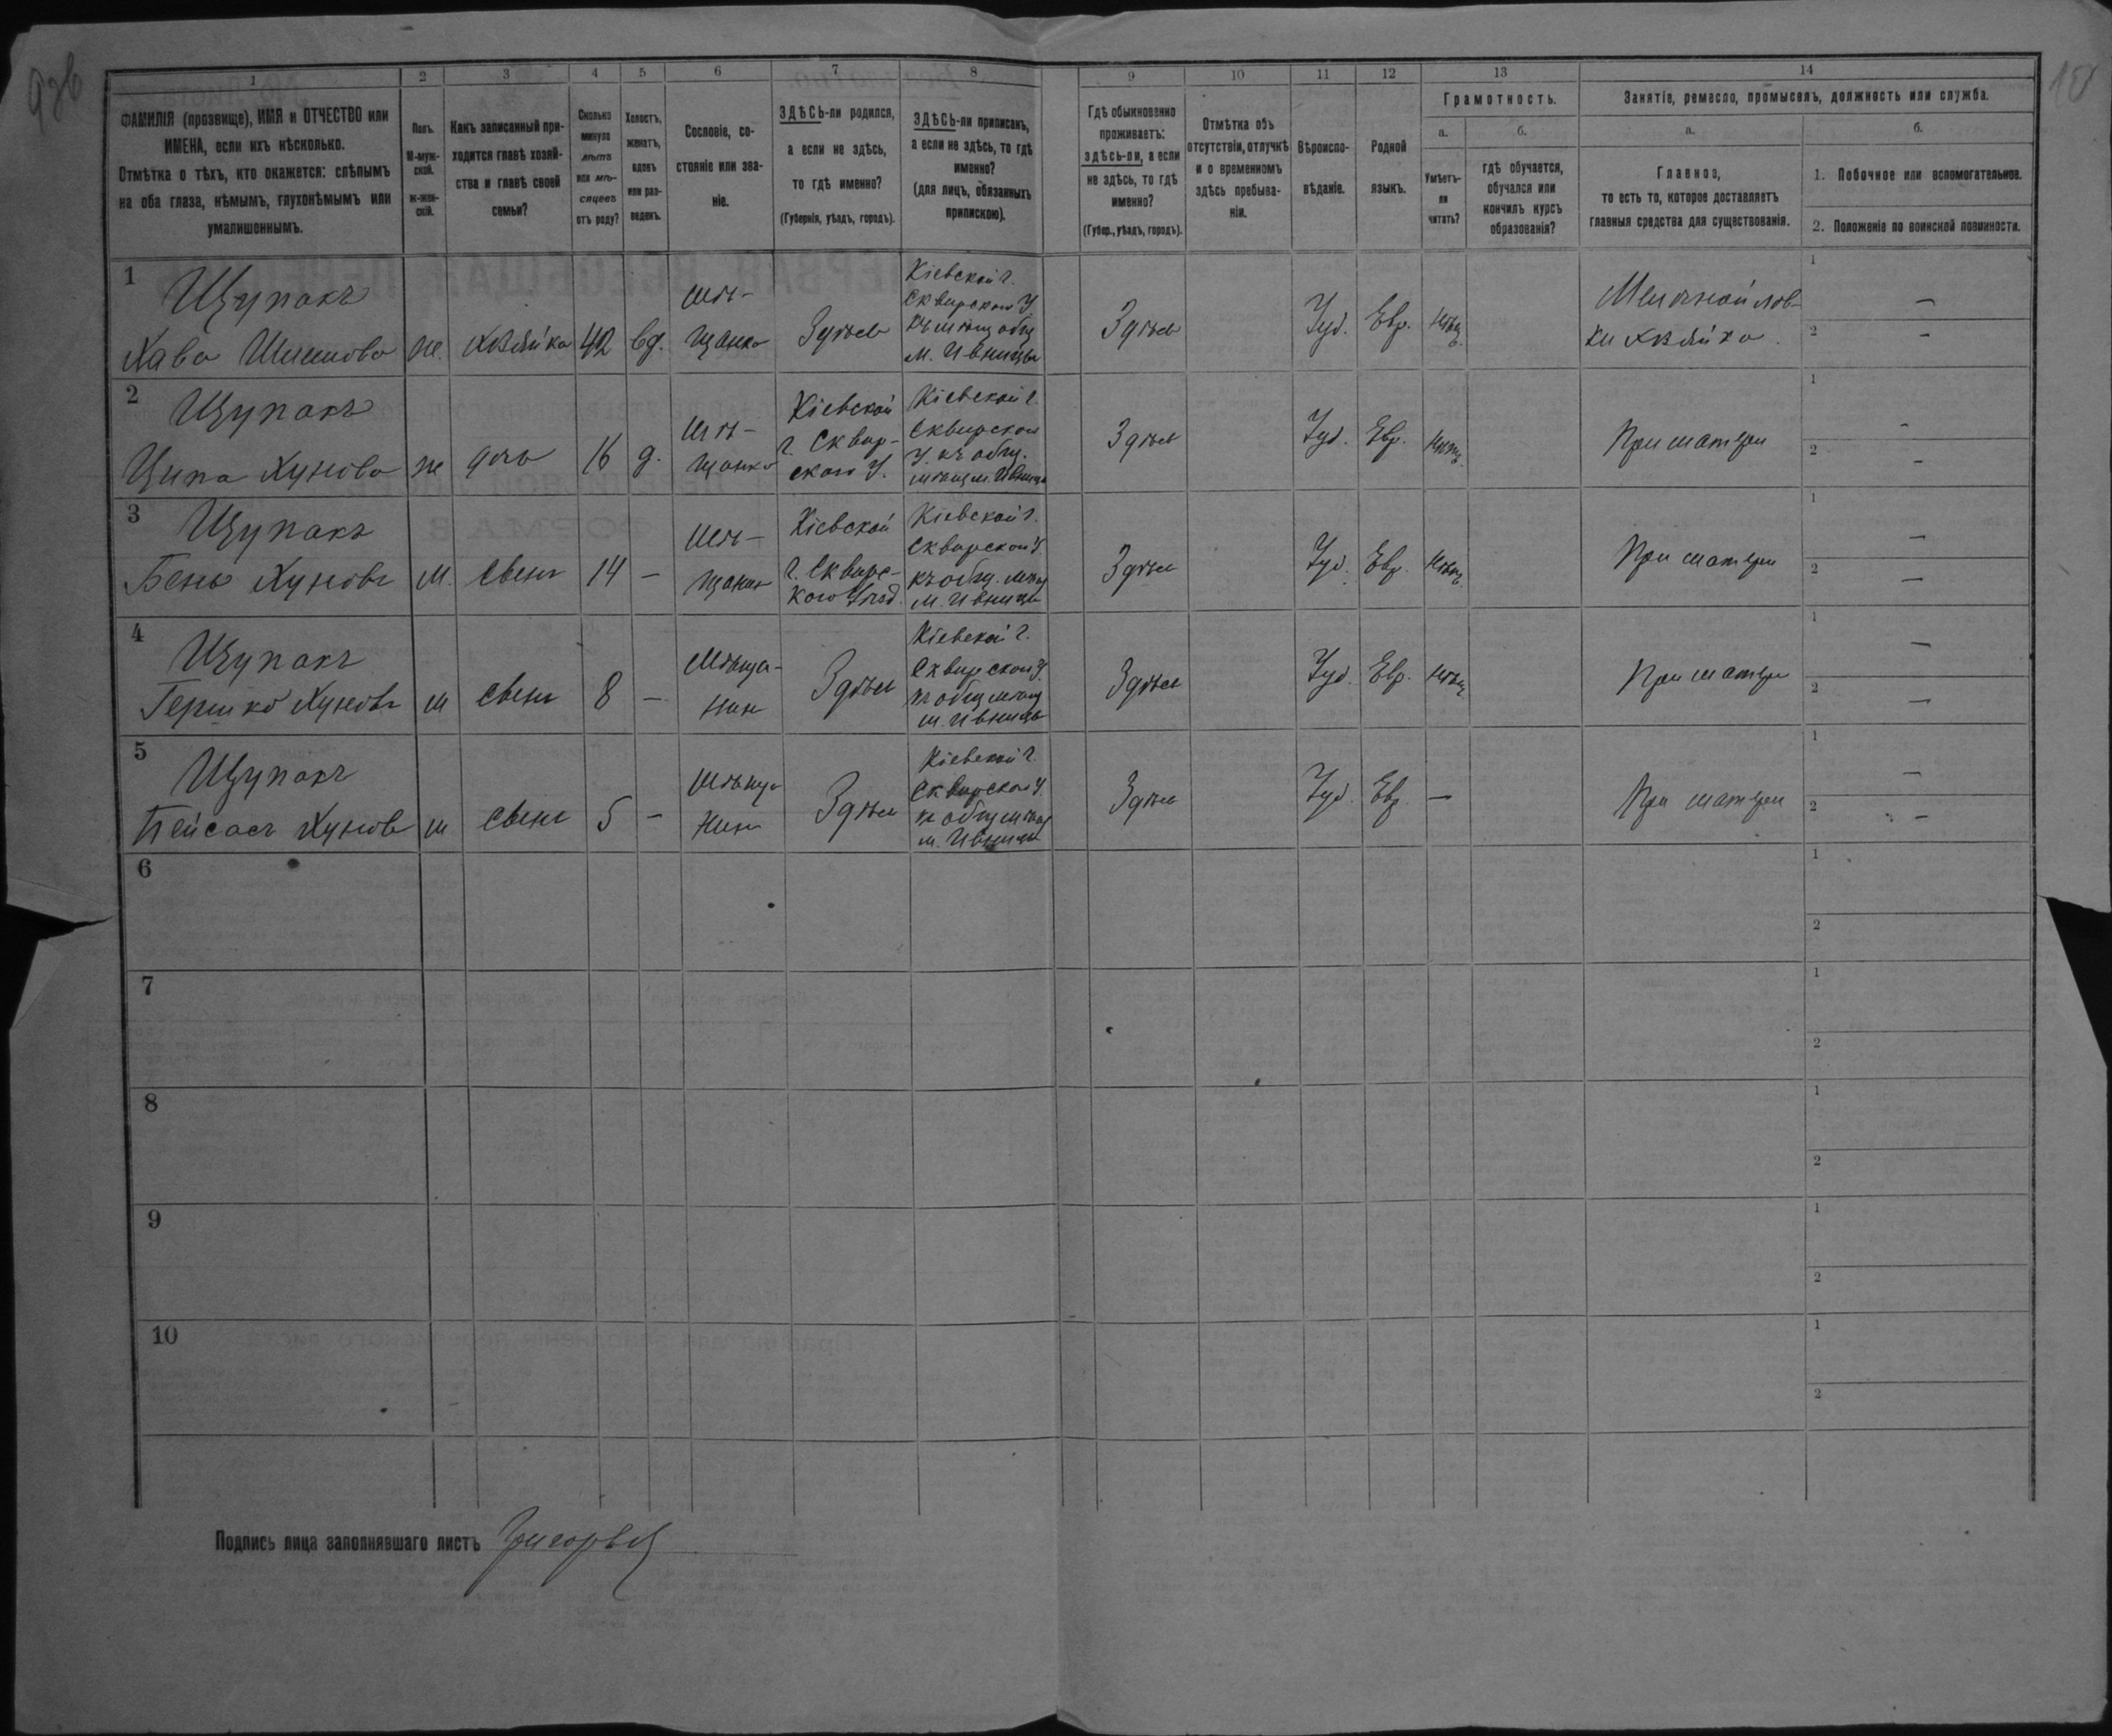 1 2 3 4 5 6 7 8 9 10 11 12 13 14
ФАМИЛІЯ (прозвище), ИМЯ и ОТЧЕСТВО или
ИМЕНА, если ихъ нѣсколько.
Отмѣтка о тѣхъ, кто окажется: слѣпымъ
на оба глаза, нѣмымъ, глухонѣмымъ или
умалишеннымъ.
Полъ.
М-муж-
ской.
ж-жен-
скій.
Какъ записанный при-
ходится главѣ хозяй-
ства и главѣ своей
семьи?
Сколько
минуло
лѣтъ
или мѣ-
сяцевъ
отъ роду?
Холостъ,
женатъ,
вдовъ
или раз-
веденъ.
Сословіе, со-
стояніе или зва-
ніе.
ЗДѢСЬ-ли родился,
а если не здѣсь,
то гдѣ именно?
(Губернія, уѣздъ, городъ).
ЗДѢСЬ-ли приписанъ,
а если не здѣсь, то гдѣ
именно?
(для лицъ, обязанныхъ
припискою).
Гдѣ обыкновенно
проживаетъ:
здѣсь-ли, а если
не здѣсь, то гдѣ
именно?
(Губер., уѣздъ, городъ).
Отмѣтка объ
отсутствіи, отлучкѣ
и о временномъ
здѣсь пребыва-
ніи.
Вѣроиспо-
вѣданіе.
Родной
языкъ.
Грамотность.
а.
Умѣетъ-
ли
читать?
б.
гдѣ обучается,
обучался или
кончилъ курсъ
образованія?
Занятіе, ремесло, промыселъ, должность или служба.
а.
Главное,
то есть то, которое доставляетъ
главныя средства для существованія.
б.
1. Побочное или вспомогательное.
2. Положеніе по воинской повинности.
1
Щупакъ
Хава Шлемова
ж.
хозяйка
42
вд.
мѣ-
щанка
Здѣсь
Кіевской г.
Сквирскаго У.
къ мѣщ общ
м. Ивницы
Здѣсь
Іуд.
Евр.
нѣтъ
Мелочной лав-
ки хозяйка.
1 —
2 —
2
Щупакъ
Ципа Хунова
ж
дочь
16
д.
мѣ-
щанка
Кіевской
г. Сквир-
скаго У.
Кіевской г.
Сквирскаго
У. къ общ.
мѣщ м. Ивница
Здѣсь
Іуд.
Евр.
нѣтъ
При матери
1 -
2 -
3
Щупакъ
Бень Хуновъ
м.
сынъ
14
—
мѣ-
щанин
Кіевской
г. Сквирс-
каго Уѣзд.
Кіевской г.
Сквирскаго У.
къ общ. мѣщ
м. Ивница
Здѣсь
Іуд.
Евр.
нѣтъ
При матери
1 —
2 —
4
Щупакъ
Гершко Хуновъ
м
сынъ
8
—
мѣща-
нин
Здѣсь
Кіевской г.
Сквирскаго У.
къ общ мѣщ
м. Ивницы
Здѣсь
Іуд.
Евр.
нѣтъ
При матери
1 —
2 —
5
Щупакъ
Пейсасъ Хунов
м
сынъ
5
—
мѣща
нин
Здѣсь
Кіевской г.
Сквирскаго У.
къ общ мѣщ
м. Ивницы
Здѣсь
Іуд.
Евр.
—
При матери
1 —
2 —
6
1
2
7
1
2
8
1
2
9
1
2
10
1
2
Подпись лица заполнявшаго листъ